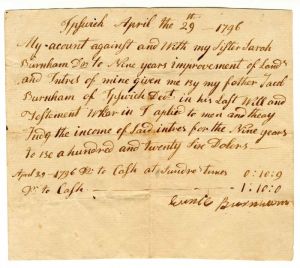 Ipswich April the 29th 1796
My acount against and With my Sister Sarah
Burnham Dr to Nine years improvement of Land
and Intres of mine given me By my father
Burnham of Ipswich Decd in his Last Will and
Testement Whar in I aplied to men and theay
Judg the income of Said intres for the Nine years
to be a hundred and twenty five Dolers
April 30 1796 Dr to Cash at Sundre times 0:10:9
Dr to Cash 1:10:0
Burnham